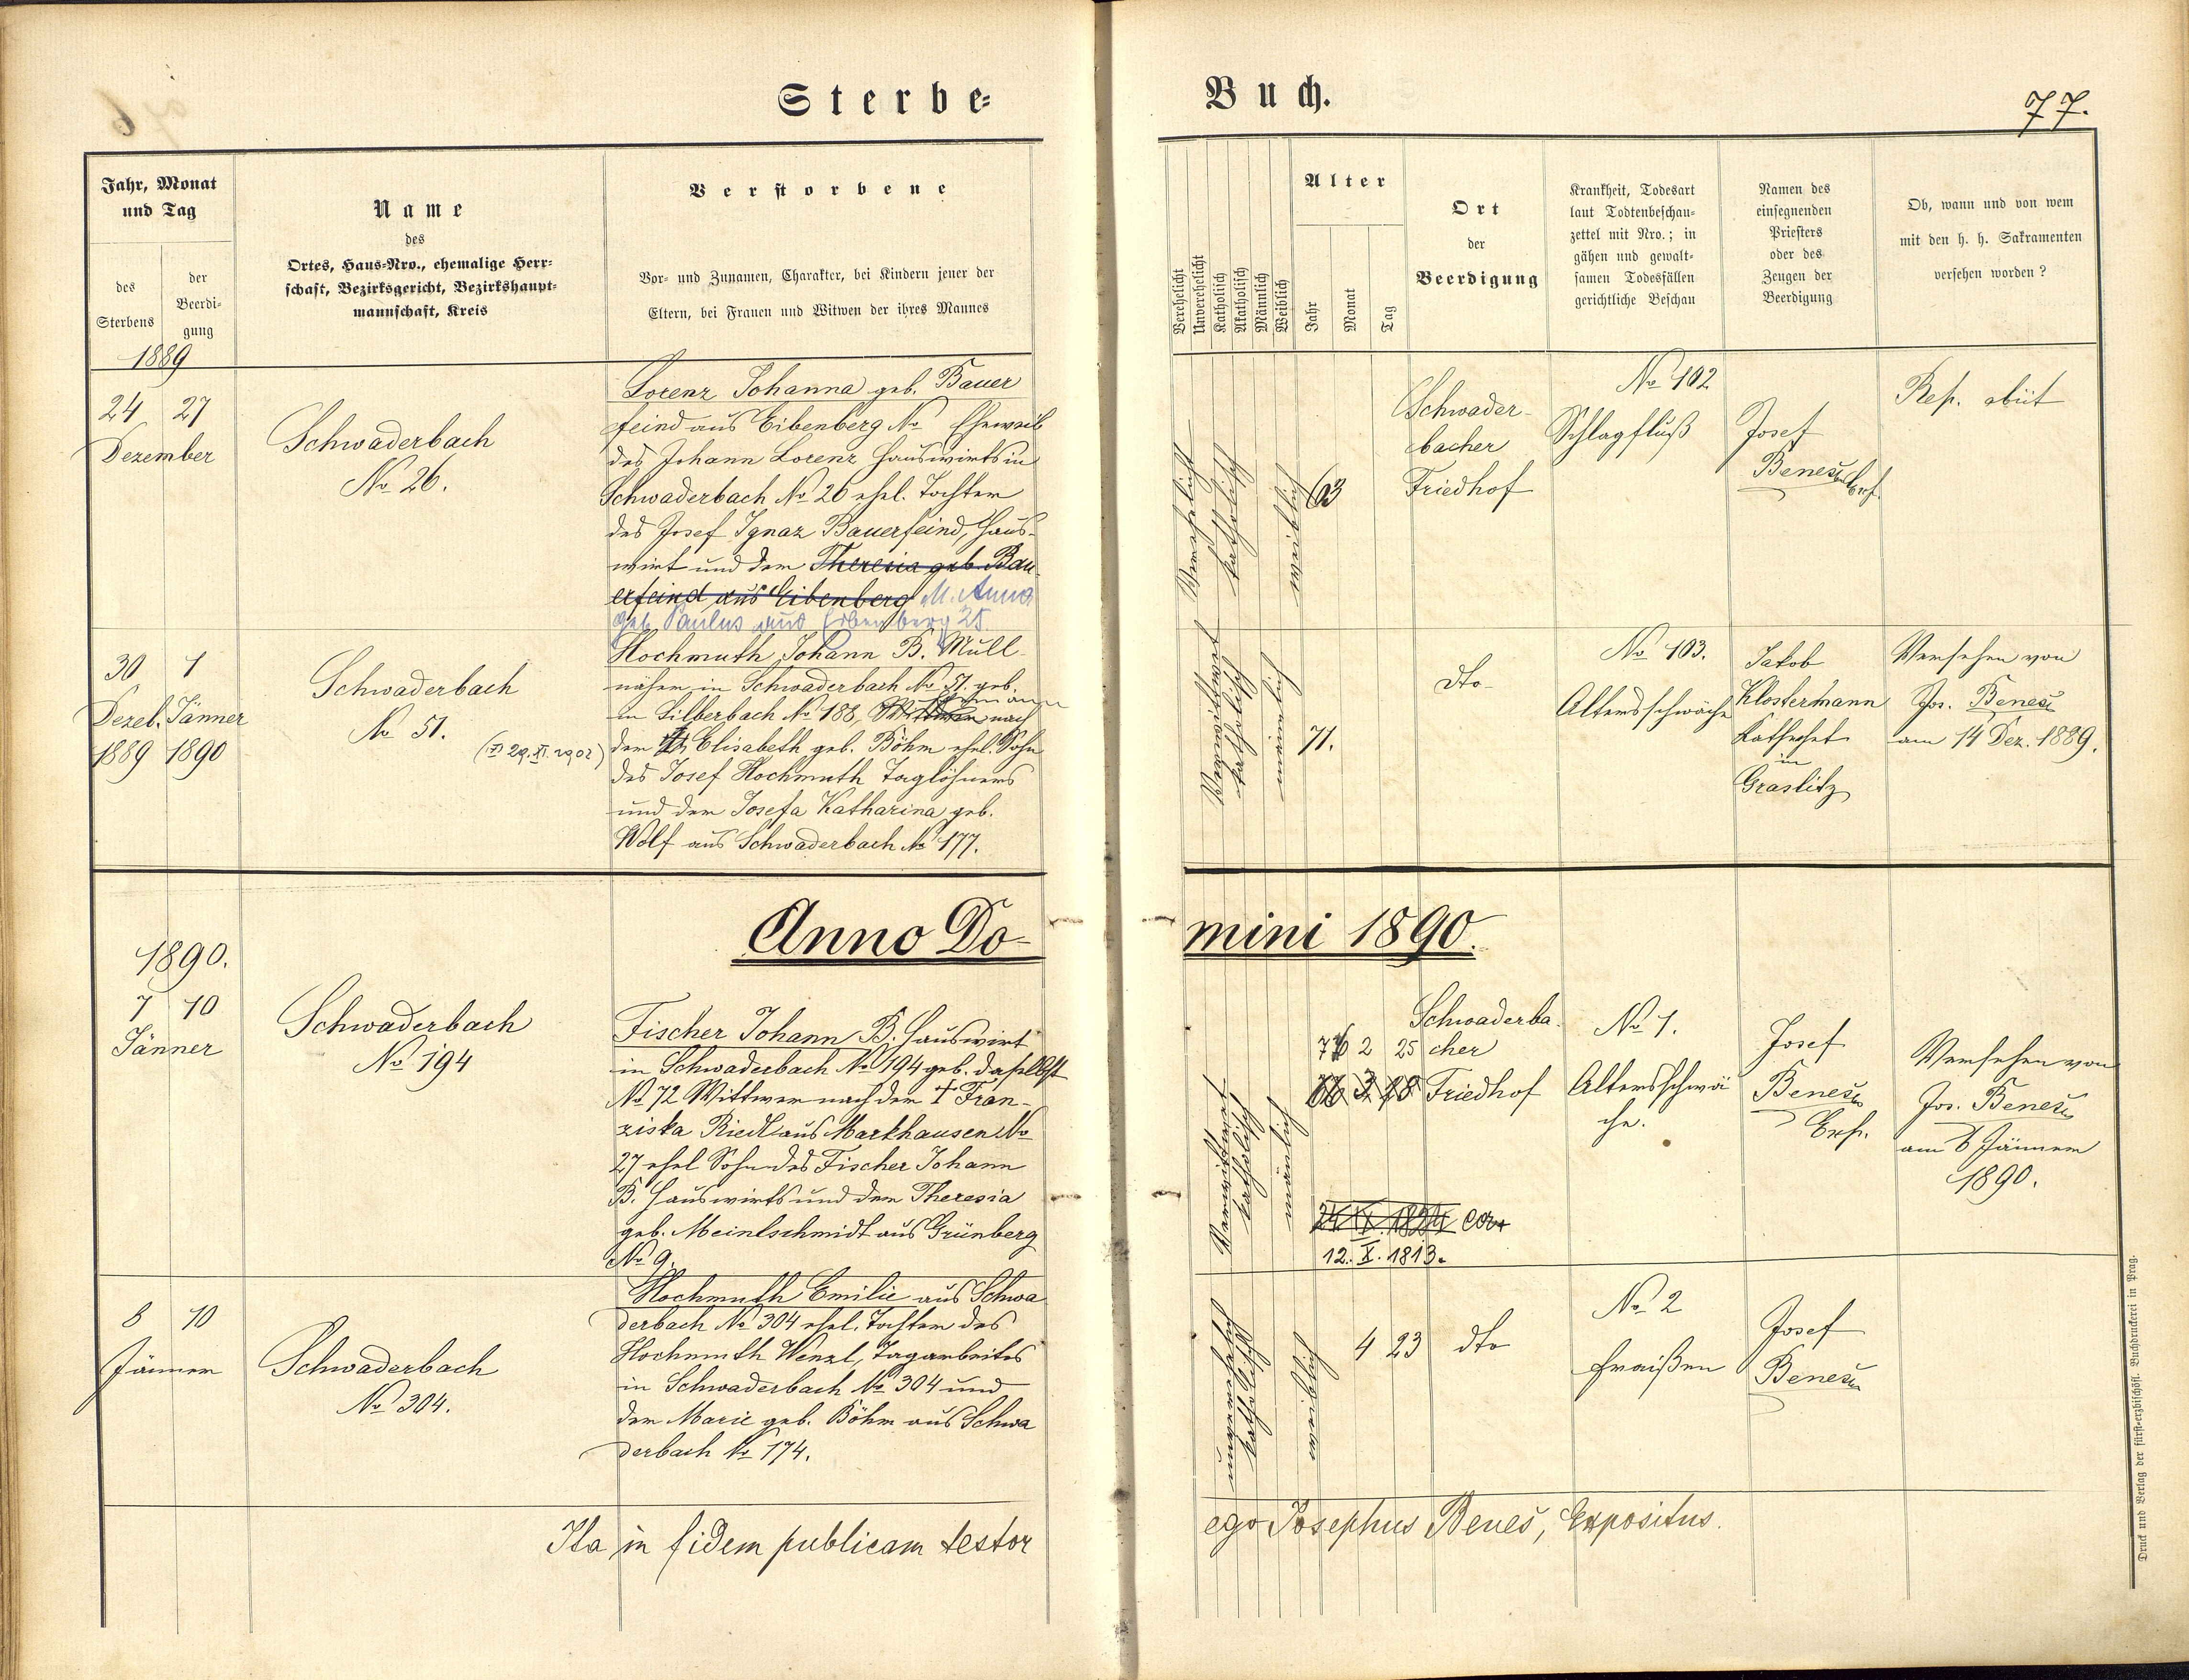 Sterbe-
Buch.
77.
Jahr, Monat
und Tag
des
Sterbens
der
Beerdi-
gung
Name
des
Ortes, Haus-Nro., ehemalige Herr-
schaft, Bezirksgericht, Bezirkshaupt-
mannschaft, Kreis
Verstorbene
Vor- und Zunamen, Charakter, bei Kindern jener der
Eltern, bei Frauen und Witwen der ihres Mannes
Verehelicht
Unverehelicht
Katholisch
Akatholisch
Männlich
Weiblich
Alter
Jahr
Monat
Tag
Ort
der
Beerdigung
Krankheit, Todesart
laut Todtenbeschau-
zettel mit Nro.; in
gähen und gewalt-
samen Todesfällen
gerichtliche Beschau
Namen des
einsegnenden
Priesters
oder des
Zeugen der
Beerdigung
Ob, wann und von wem
mit den h. h. Sakramenten
versehen worden?
1889
24 27
Dezember
Schwaderbach
No 26.
Lorenz Johanna geb. Bauer
feind aus Eibenberg No Eheweib
des Johann Lorenz Hauswirts in
Schwaderbach No 26 ehel. Tochter
des Josef Ignaz Bauerfeind, Haus-
wirt und der Theresia geb. Bau
erfeind aus Eibenberg M. Anna
geb. Paulus aus Eibenberg 25.
Verehelicht
katholisch
weiblich
63
Schwader-
bacher
Friedhof
No 102
Schlagfluß
Josef
Beneš Exp.
Rep. obiit
30 1
Dezeb. Jänner
1889 1890
Schwaderbach
No 51.
Hochmuth Johann B. Müll-
näher in Schwaderbach No 51. geb.
in Silberbach No 188, Wittwer nach
Ehemann
(† 29. XI. 1902)
der Elisabeth geb. Böhm ehel. Sohn
des Josef Hochmuth Taglöhners
und der Josefa Katharina geb.
Wolf aus Schwaderbach No 177.
Verwittwet
katholisch
mänlich
71.
dto
No 103.
Altersschwäche
Jakob
Klostermann
Kathechet
in
Graslitz
Versehen von
Jos. Beneš
am 14 Dez. 1889.
Anno Do-
mini 1890.
1890.
7 10
Jänner
Schwaderbach
No 194
Fischer Johann B. Hauswirt
in Schwaderbach No 194 geb. daselbst
No 72 Wittwer nach der † Fran-
ziska Riedl aus Markhausen No
27 ehel Sohn des Fischer Johann
B. Hauswirts und der Theresia
geb. Meinlschmidt aus Grünberg
No 9.
Verwittwet
katholisch
mänlich
76 2 25
66 3 18
24. IX. 1824 cor+
12. X. 1813.
Schwaderba-
cher
Friedhof
No 1.
Altersschwä
che.
Josef
Beneš
Exp.
Versehen von
Jos. Beneš
am 6 Jänner
1890.
8 10
Jänner
Schwaderbach
No 304.
Hochmuth Emilie aus Schwa
derbach No 304 ehel. Tochter des
Hochmuth Wenzl, Tagarbeiters
in Schwaderbach No 304 und
der Marie geb. Böhm aus Schwa
derbach No 174.
unverehelich
katholisch
weiblich
4 23
dto
No 2
Fraißen
Josef
Beneš
Ita in fidem publicam testor
ego Josephus Beneš, Expositus.
Druck und Verlag der fürst-erzbischöfl. Buchdruckerei in Prag.